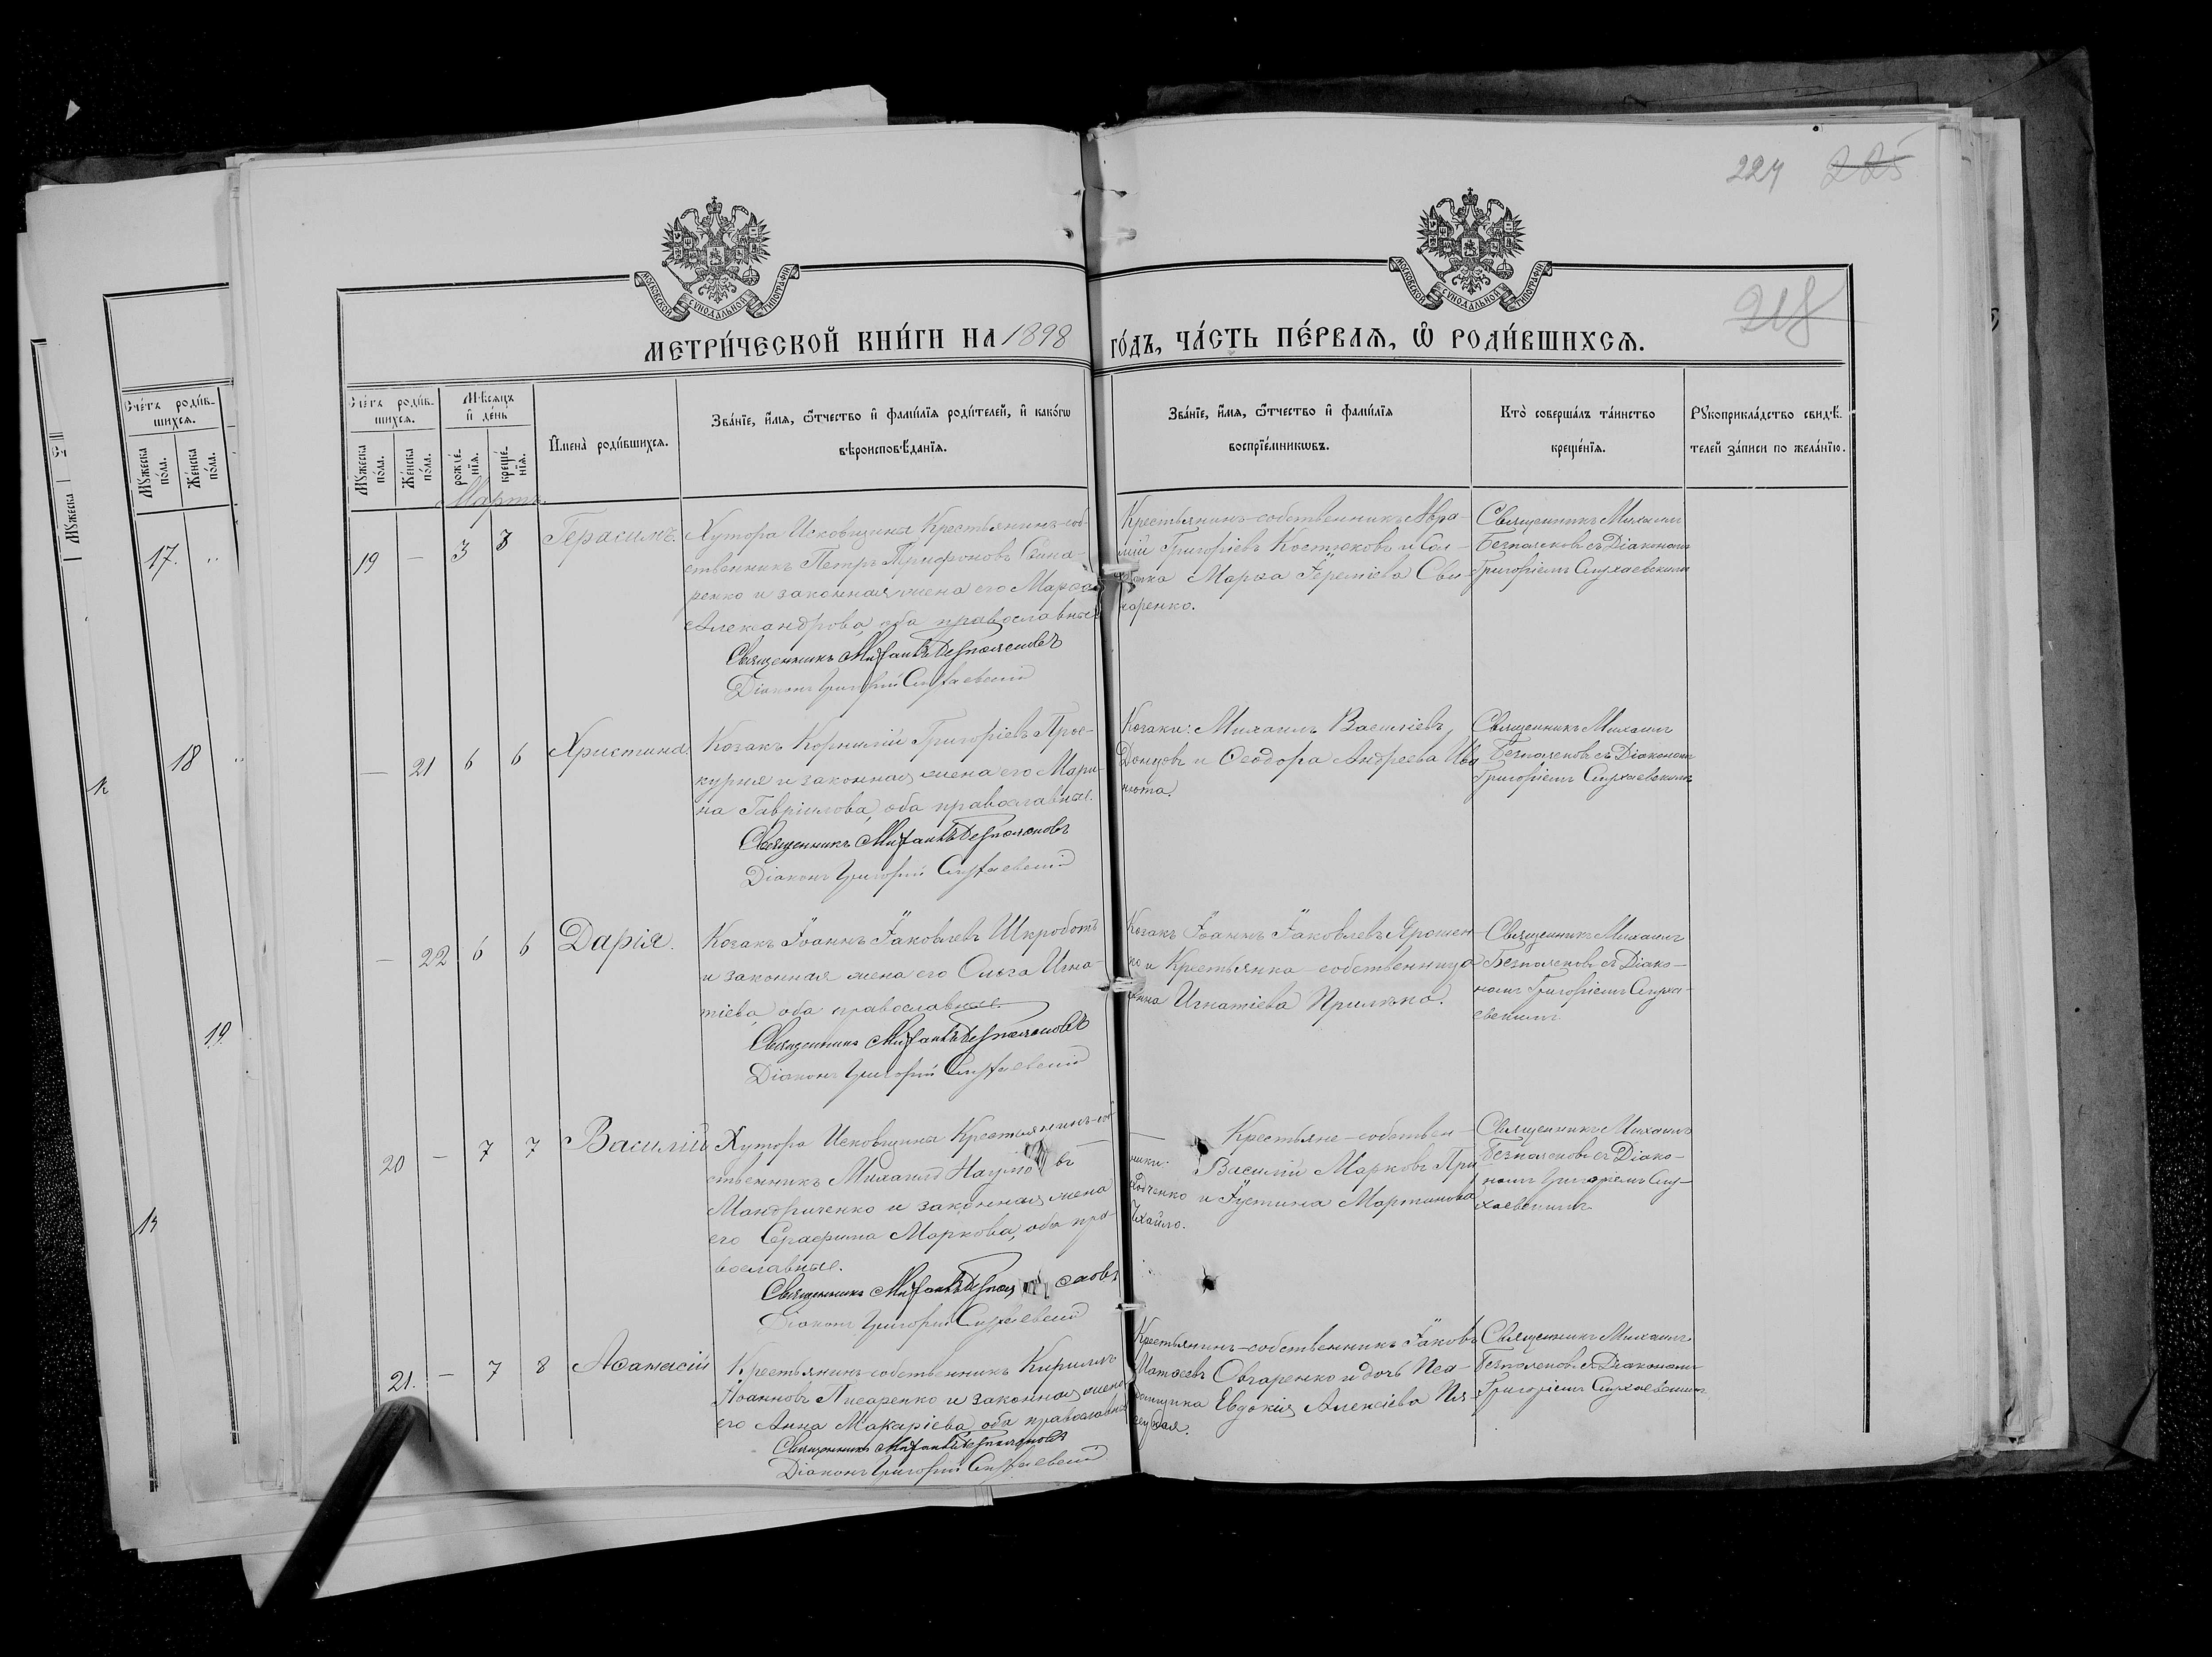 224 225
218
МОСКОВСКОЙ СУНОДАЛЬНОЙ ТИПОГРАФІИ
МОСКОВСКОЙ СУНОДАЛЬНОЙ ТИПОГРАФІИ
МЕТРИ́ЧЕСКОЙ КНИ́ГИ НА 1898 ГО́ДЪ, ЧА́СТЬ ПЕ́РВАѦ, Ѿ РОДИ́ВШИХСѦ.
Сче́тъ роди́в-
шихсѧ.
Мꙋ́жеска
по́ла.
Же́нска
по́ла.
Сче́тъ роди́в-
шихсѧ.
Мꙋ́жеска
по́ла.
Же́нска
по́ла.
Мѣ́сѧцъ
и҆ де́нь
рожде́-
нїѧ.
креще́-
нїѧ.
И҆мена̀ роди́вшихсѧ.
Зва́нїе, и҆́мѧ, ѻ҆́тчество и҆ фами́лїѧ роди́телей, и҆ како́гѡ
вѣроисповѣ́данїѧ.
Зва́нїе, и҆́мѧ, ѻ҆́тчество и҆ фами́лїѧ
воспрїе́мникѡвъ.
Кто̀ соверша́лъ та́инство
креще́нїѧ.
Рꙋкоприкла́дство свидѣ́-
телей за́писи по жела́нїю.
17.
18
19
Мартъ.
19 — 3 8 Герасимъ.
Хутора Исковщины Крестьянинъ-соб-
ственникъ Петръ Трифоновъ Свина-
ренко и законная жена его Марѳа
Александрова, оба православные
Священникъ Михаилъ Безпалековъ
Діаконъ Григорій Слухаевскій
Крестьянинъ-собственникъ Авра-
мій Григоріевъ Костюковъ и Сол-
датка Марѳа Іереміева Сви-
наренко.
Священникъ Михаилъ
Безпалековъ съ Діакономъ
Григоріемъ Слухаевскимъ
— 21 6 6 Христина
Козакъ Корнилій Григоріевъ Прос-
курня и законная жена его Мари-
на Гавріилова, оба православные.
Священникъ Михаилъ Безпалековъ
Діаконъ Григорій Слухаевскій
Козаки: Михаилъ Васильевъ
Донцовъ и Ѳеодора Андреева Ива-
нюта.
Священникъ Михаилъ
Безпалековъ съ Діакономъ
Григоріемъ Слухаевскимъ
— 22 6 6 Дарія.
Козакъ Іоаннъ Іаковлевъ Шкроботъ
и законная жена его Ольга Игна-
тіева, оба православные
Священникъ Михаилъ Безпалековъ
Діаконъ Григорій Слухаевскій
Козакъ Іоаннъ Іаковлевъ Ярошен-
ко и Крестьянка-собственница
Анна Игнатіева Прилѣпа.
Священникъ Михаилъ
Безпалековъ съ Діако-
номъ Григоріемъ Слуха-
евскимъ
20 — 7 7 Василій
Хутора Исковщины Крестьянинъ-соб-
ственникъ Михаилъ Наумовъ
Мандриченко и законная жена
его Серафима Маркова, оба пра-
вославные.
Священникъ Михаилъ Безпалековъ
Діаконъ Григорій Слухаевскій
Крестьяне-собствен-
ники: Василій Марковъ При-
ходченко и Іустина Мартинова
Михайло.
Священникъ Михаилъ
Безпалековъ съ Діако-
номъ Григоріемъ Слу-
хаевскимъ
21. — 7 8 Аѳанасій
Крестьянинъ-собственникъ Кириллъ
Іоанновъ Писаренко и законная жена
его Анна Макаріева, оба православные
Священникъ Михаилъ Безпалековъ
Діаконъ Григорій Слухаевскій
Крестьянинъ-собственникъ Іаковъ
Матѳеевъ Овчаренко и дочь Пса-
ломщика Евдокія Алексіева
Священникъ Михаилъ
Безпалековъ съ Діакономъ
Григоріемъ Слухаевскимъ